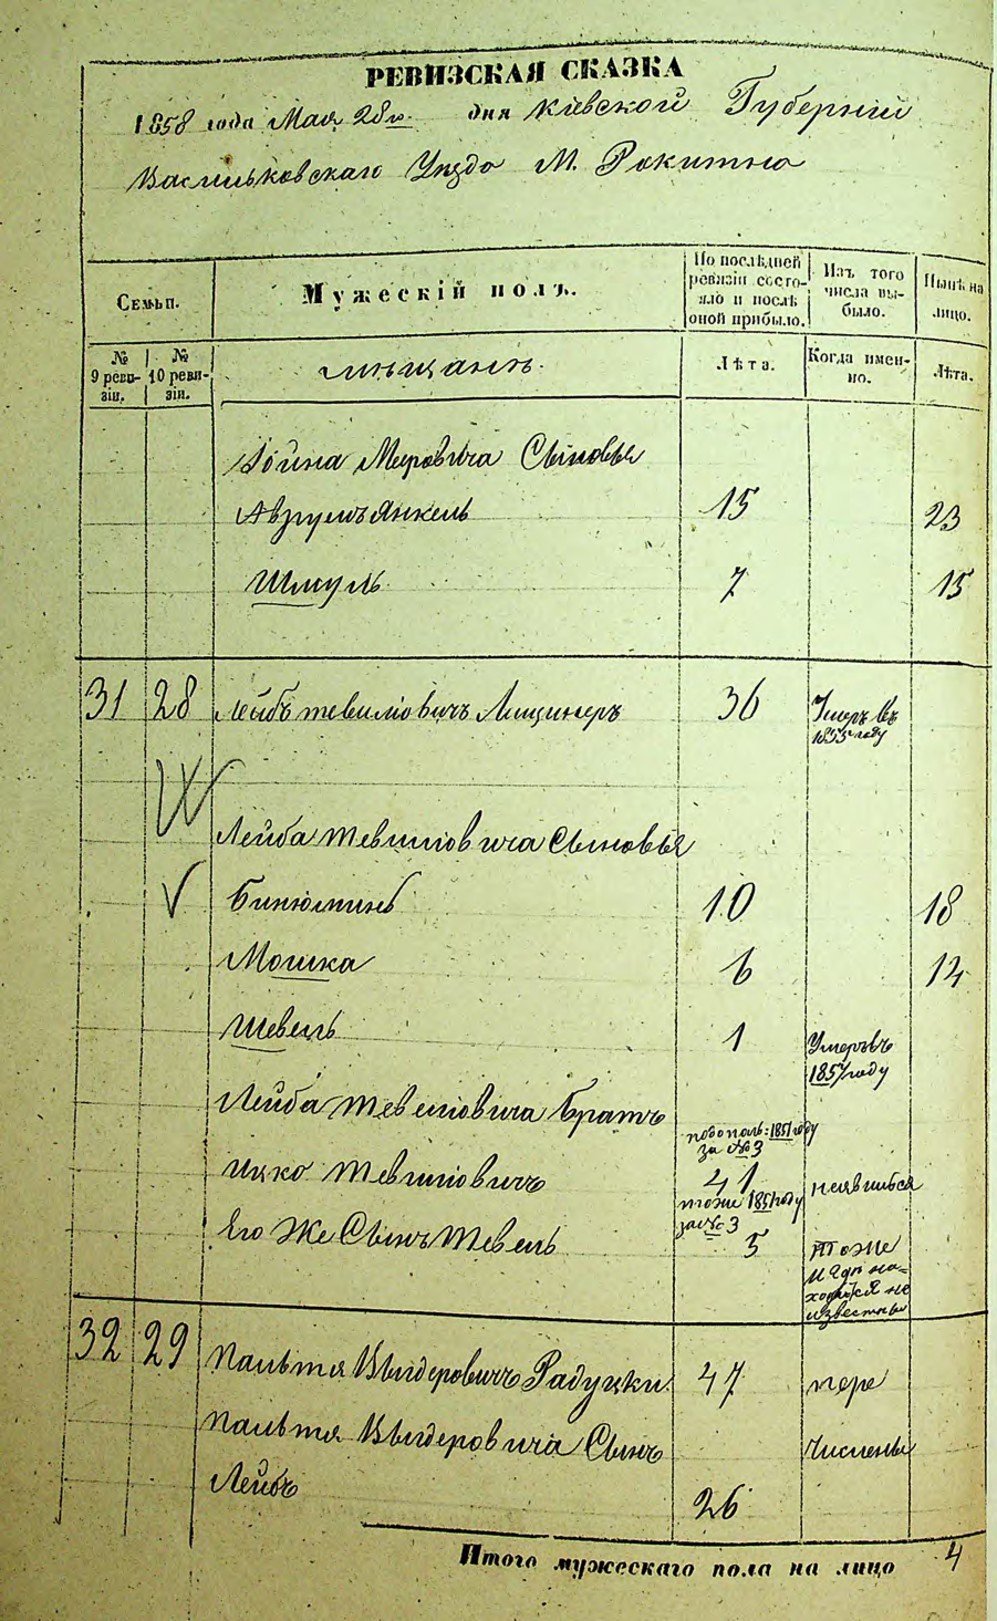 РЕВИЗСКАЯ СКАЗКА
1858 года Мая 28го. дня Кіевской Губерніи
Васильковскаго Уѣзда М. Рокитно
Семьи.
Мужескій полъ.
По послѣдней ревизіи состояло и послѣ оной прибыло.
Изъ того числа выбыло.
Нынѣ на лицо.
№ 9 ревизіи.
№ 10 ревизіи.
мѣщанъ.
Лѣта.
Когда именно.
Лѣта.
Мееровича Сыновья
Аврумъ Янкель 15 23
Шмуль 7 15
31 28 Лейбъ Тевелювичъ 36 Умеръ въ
1855 году
Лейба Тевелювича Сыновья
Бинюминъ 10 18
Мошка 6 14
Шевель 1 Умеръ въ
1857 году
Лейба Тевелювича Братъ
1851 году
за № 3
Ицко Тевелювичъ 41 неявившся
тоже 1851 году
за № 3
Его Же Сынъ Тевель 5 тоже
и гдѣ на-
ходятся не
известны
32 29 47 пере
Сынъ числены
Лейбъ 26
Итого мужескаго пола на лицо 4